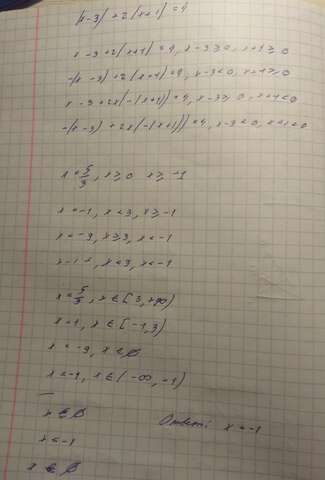 |x-3|+2|x+1|=4
x-3+2(x+1)=4, x-3≥0, x+1≥0
-(x-3)+2(x+1)=4, x-3<0, x+1≥0
x-3+2x(-(x+1))=4, x-3≥0, x+1<0
-(x-3)+2x(-(x+1))=4, x-3<0, x+1<0
x=5/3, x≥0 x≥-1
x=-1, x<3, x≥-1
x=-9, x≥3, x<-1
x=-1, x<3, x<-1
x=5/3, x∈[3,+∞)
x=1, x∈[-1,3)
x=-9, x∈∅
x=-1, x∈(-∞,-1)
x∈∅
x=-1
x∈∅
Ответ: x=-1